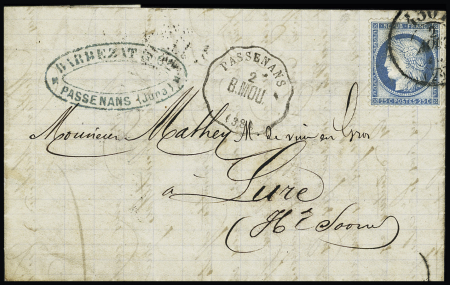 BARBEZAT
PASSENANS (Jura)
PASSENANS
2
B.MOU.
(38)
25 C. POSTES 25 C.
Monsieur Mathey Md de vin en Gros
à Lure
Hte Saone